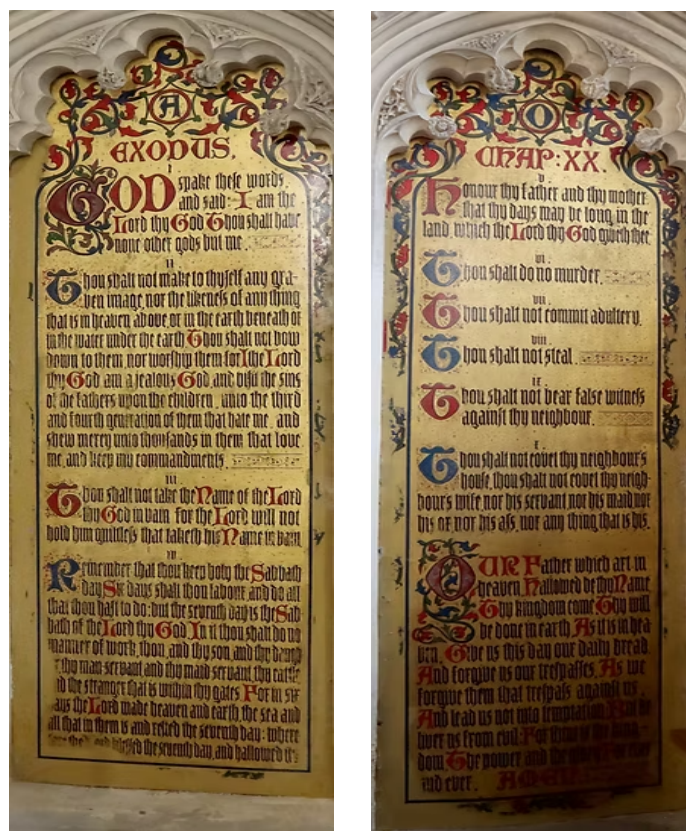 A
EXODUS.
I
GOD spake these words,
and said: I am the
Lord thy God Thou shalt have
none other gods but me.
II
Thou shalt not make to thyself any gra-
ven image, nor the likeness of any thing
that is in heaven above, or in the earth beneath or
in the water under the earth Thou shalt not bow
down to them, nor worship them for I the Lord
thy God am a jealous God, and visit the sins
of the fathers upon the children, unto the third
and fourth generation of them that hate me, and
shew mercy unto thousands in them that love
me, and keep my commandments.
III
Thou shalt not take the Name of the Lord
thy God in vain for the Lord will not
hold him guiltless that taketh his Name in vain
IV
Remember that thou keep holy the Sabbath
day Six days shalt thou labour and do all
that thou hast to do: but the seventh day is the Sab
bath of the Lord thy God In it thou shalt do no
manner of work, thou, and thy son, and thy daugh
thy man servant and thy maid servant, thy cattle
d the stranger that is within thy gates For in six
ays the Lord made heaven and earth, the sea and
all that in them is and rested the seventh day: where
the Lord blessed the seventh day, and hallowed it:
O
CHAP: XX.
V
Honour thy father and thy mother
that thy days may be long in the
land, which the Lord thy God giveth thee
VI.
Thou shalt do no murder.
VII.
Thou shalt not commit adultery.
VIII.
Thou shalt not steal.
IX
Thou shalt not bear false witness
against thy neighbour.
X.
Thou shalt not covet thy neighbour's
house, thou shalt not covet thy neigh-
bour's wife, nor his servant nor his maid nor
his ox nor his ass, nor any thing that is his.
OUR Father which art in
heaven Hallowed be thy Name
Thy kingdom come Thy will
be done in earth As it is in hea
ven. Give us this day our daily bread.
And forgive us our trespasses, As we
forgive them that trespass against us.
And lead us not into temptation, But de
liver us from evil: For thine is the king
dom The power, and the glory For ever
and ever. AMEN